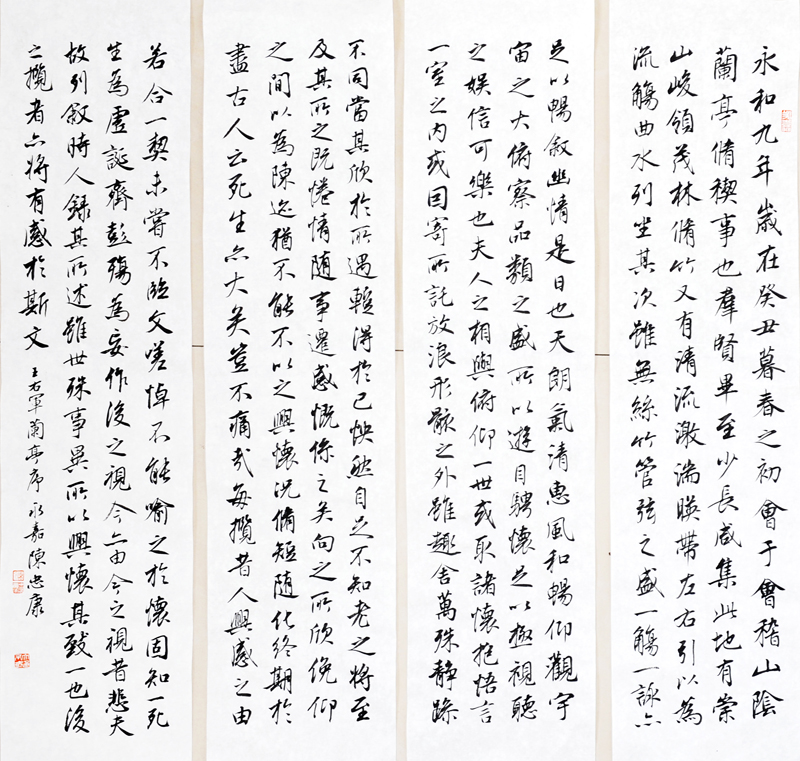 永和九年歲在癸丑暮春之初會于會稽山陰
蘭亭脩稧事也羣賢畢至少長咸集此地有崇
山峻領茂林脩竹又有清流激湍暎帶左右引以為
流觴曲水列坐其次雖無絲竹管弦之盛一觴一詠亦
足以暢敘幽情是日也天朗氣清惠風和暢仰觀宇
宙之大俯察品類之盛所以遊目騁懷足以極視聽
之娛信可樂也夫人之相與俯仰一世或取諸懷抱悟言
一室之內或因寄所託放浪形骸之外雖趣舍萬殊靜躁
不同當其欣於所遇輒得於己怏然自足不知老之將至
及其所之既惓情隨事遷感慨係之矣向之所欣俛仰
之間以為陳迹猶不能不以之興懷況脩短隨化終期於
盡古人云死生亦大矣豈不痛哉每攬昔人興感之由
若合一契未嘗不臨文嗟悼不能喻之於懷固知一死
生為虛誕齊彭殤為妄作後之視今亦由今之視昔悲夫
故列敘時人錄其所述雖世殊事異所以興懷其致一也後
之攬者亦將有感於斯文 王右軍蘭亭序 永嘉陳忠康